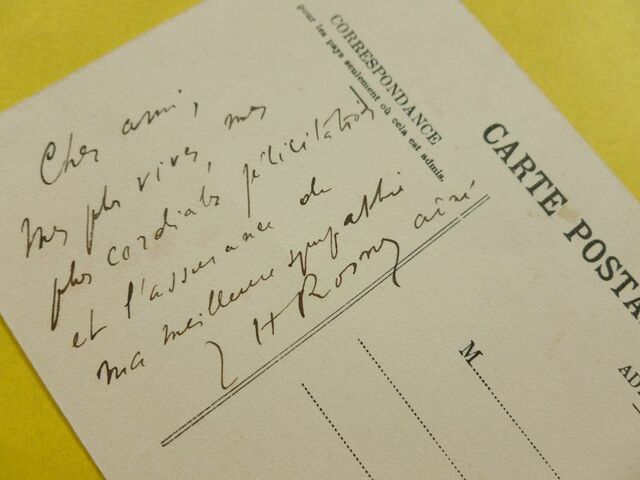 CORRESPONDANCE
pour les pays seulement où cela est admis.
Cher ami,
Mes plus vives, mes
plus cordiales félicitations
et l'assurance de
ma meilleure sympathie
J H Rosny aîné
CARTE POSTA
M.
AD